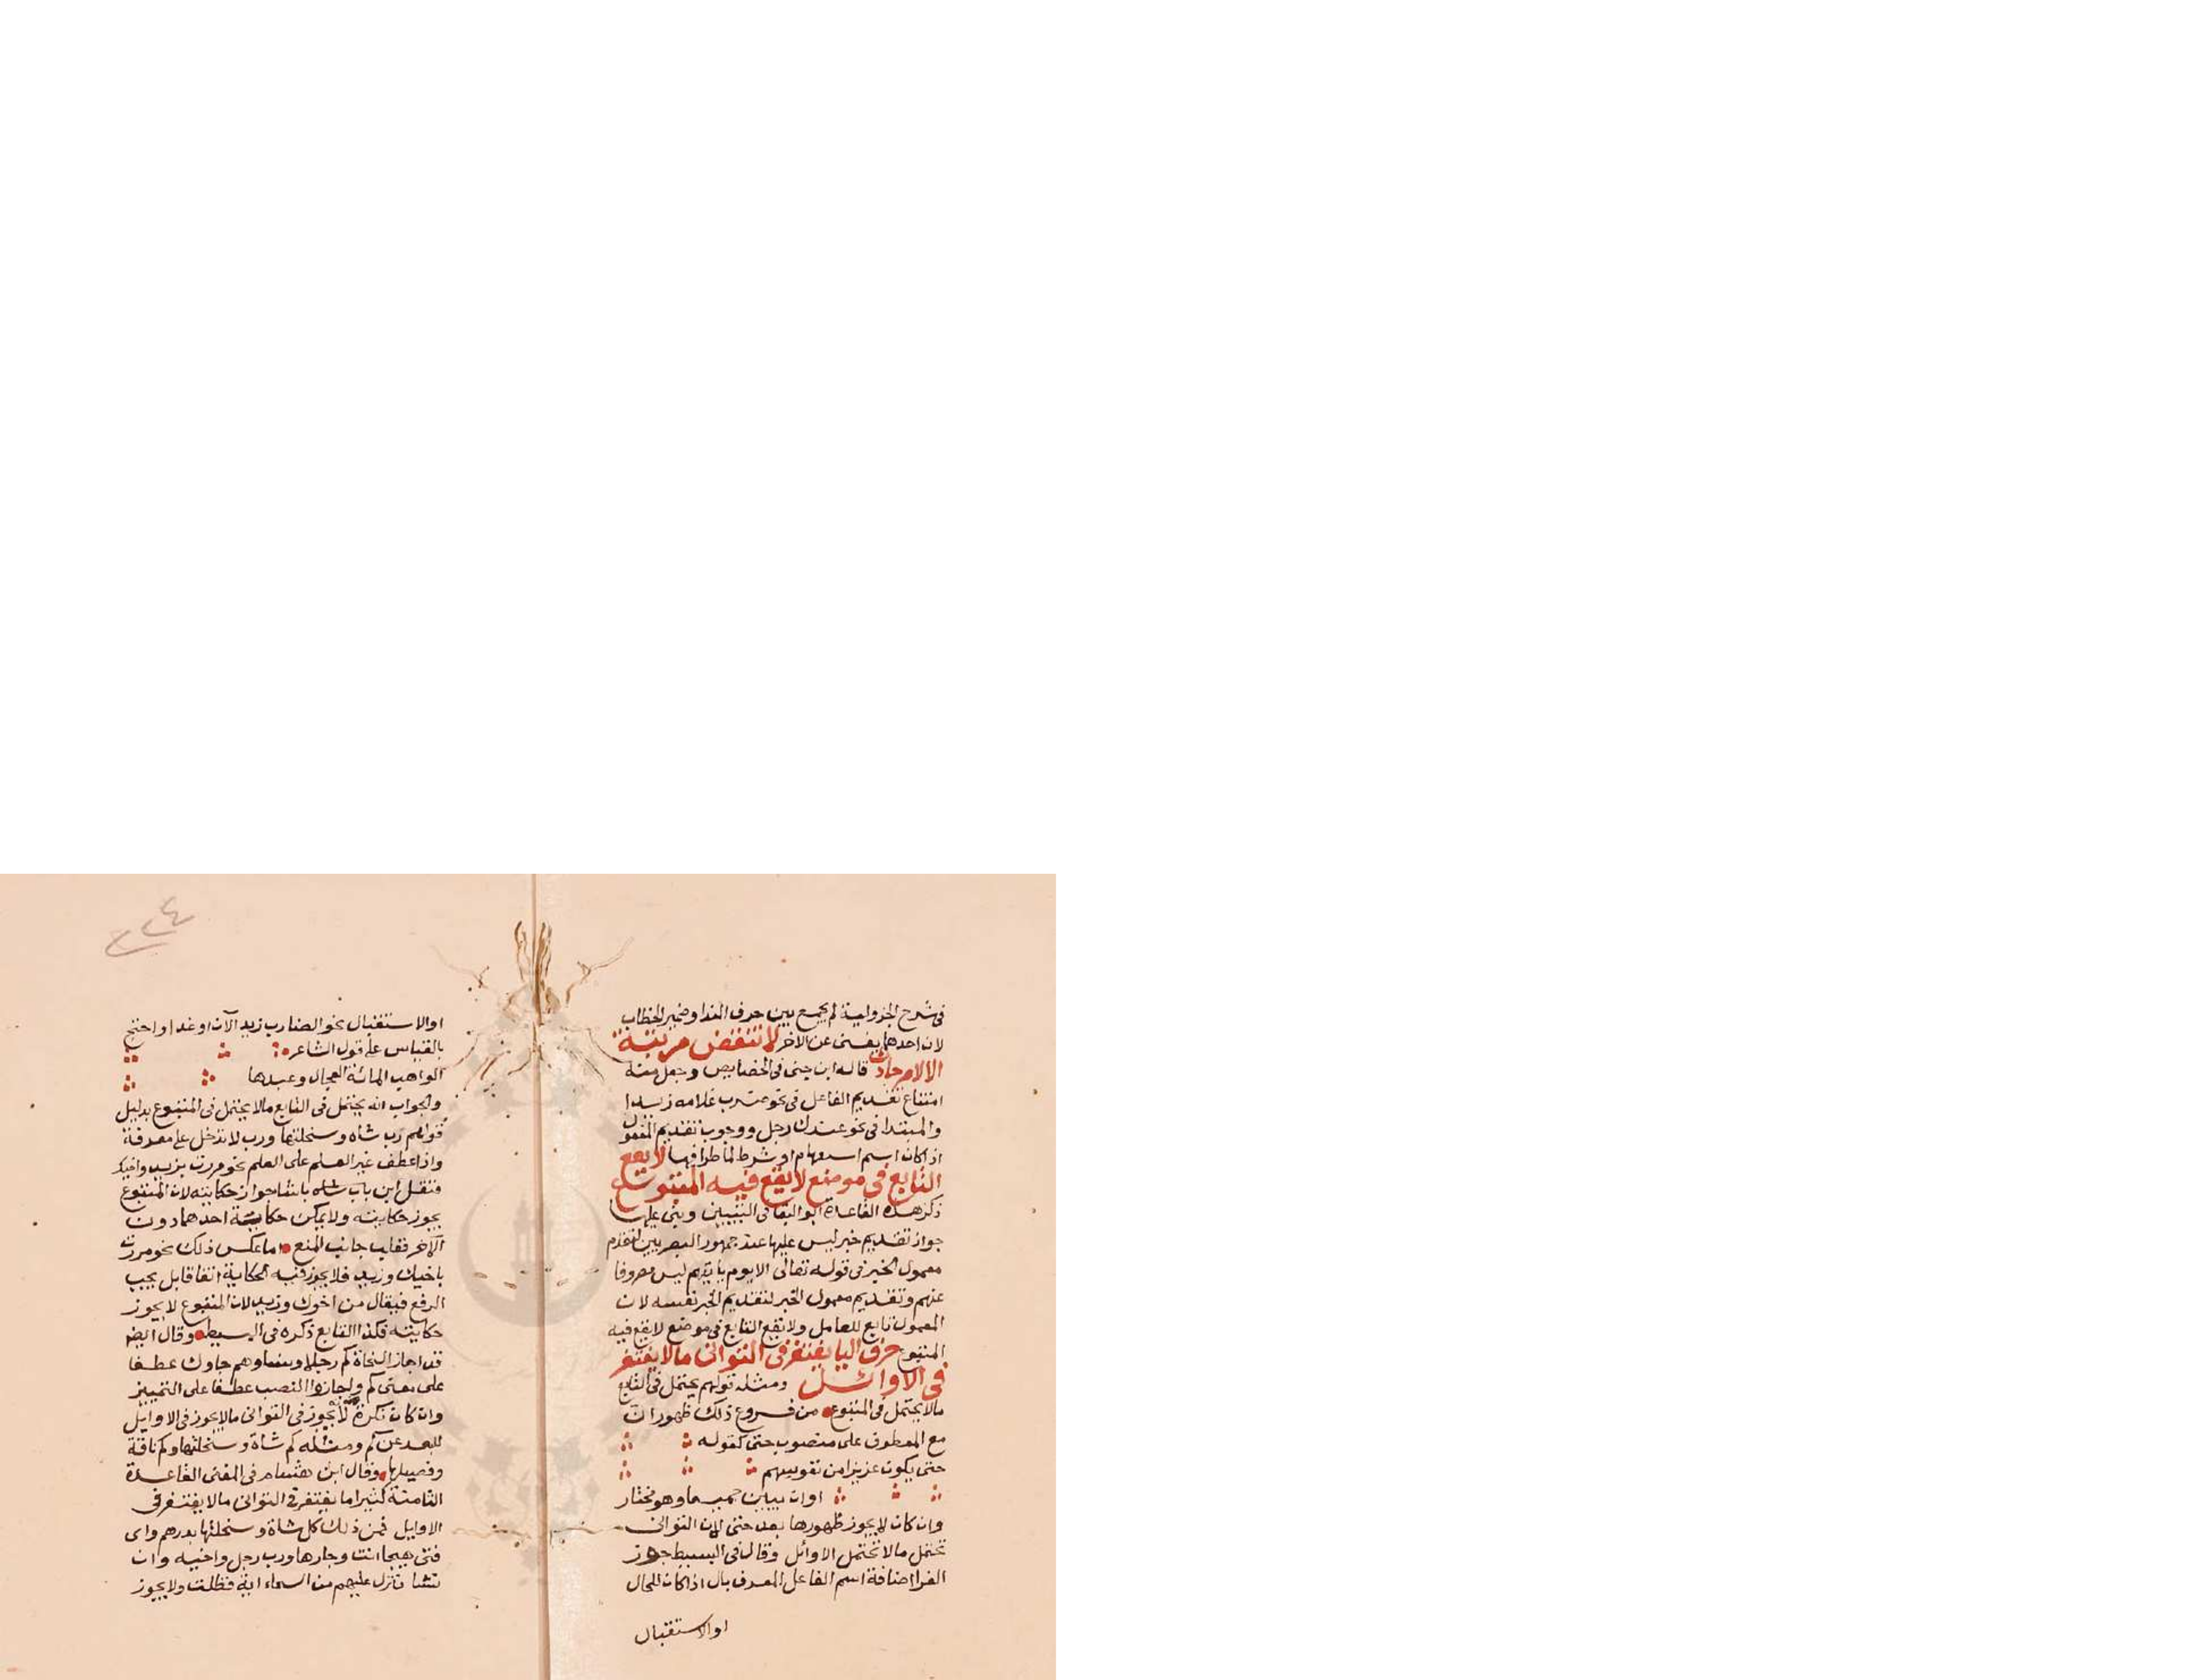 فى شرح الجزولية لم يجمع بين حرف الندا وضمير الخطاب
لان احدهما يغنى عن الاخر لا تنقض مرتبة
الا لامر حادث قاله ابن جنى فى الخصايص وجعل منه
امتناع تقديم الفاعل فى نحو ضرب غلامه زيدا
والمبتدا فى نحو عندك رجل ووجوب تقديم المفعول
اذا كان اسم استفهام او شرط لما طرا فيها لا يقع
التابع فى موضع لا يقع فيه المتبوع
ذكر هذه القاعدة ابو البقا فى التبيين وبنى عليها
جواز تقديم خبر ليس عليها عند جمهور البصريين لتقدم
معمول الخبر فى قوله تعالى الا يوم ياتيهم ليس مصروفا
عنهم وتقديم معمول الخبر لتقديم الخبر نفسه لان
المعمول تابع للعامل ولا يقع التابع فى موضع لا يقع فيه
المتبوع حرف اليا يغتفر فى الثوانى ما لا يغتفر
فى الاوائل ومثله قولهم يحتمل فى التابع
مالا يحتمل فى المتبوع من فروع ذلك ظهور ان
مع المعطوف على منصوب حتى كقوله
حتى يكون عزيزا من نفوسهم
او ان يبين جميعا وهو مختار
وان كان لا يجوز ظهورها بعد حتى لان الثوانى
تحتمل مالا تحتمل الاوائل وقال فى البسيط جوز
الفرا اضافة اسم الفاعل المعرف بال اذا كان للحال
او الاستقبال
٢٤
او الاستقبال نحو الضارب زيد الآن او غدا واحتج
بالقياس على قول الشاعر
الواهب المائة الهجان وعبدها
والجواب انه يحتمل فى التابع مالا يحتمل فى المتبوع بدليل
قولهم رب شاه وسخلتها ورب لا تدخل على معرفة
واذا عطف غير العلم على العلم نحو مررت بزيد واخيك
فنقل ابن باب شاه باتفا جواز حكايته لان المتبوع
يجوز حكايته ولا يمكن حكاية احدهما دون
الآخر فغلب جانب المنع اما عكس ذلك نحو مررت
باخيك وزيد فلا يجوز فيه الحكاية اتفاقا بل يجب
الرفع فيقال من اخوك وزيد لان المتبوع لا يجوز
حكايته فكذا التابع ذكره فى البسيط وقال ايضا
قد اجاز النحاة كم رجلا ونساوهم جاوك عطفا
على معنى كم واجازوا النصب عطفا على التمييز
وان كان نكرة لانه يجوز فى الثوانى مالا يجوز فى الاوايل
للبعد عن كم ومثله كم شاة وسخلتها وكم ناقة
وفصيلها وقال ابن هشام فى المغنى القاعدة
الثامنة كثيرا ما يغتفر فى الثوانى مالا يغتفر فى
الاوايل فمن ذلك كل شاة وسخلتها بدرهم واى
فتى هيجا انت وجارها ورب رجل واخيه وان
نشا ننزل عليهم من السماء اية فظلت ولا يجوز